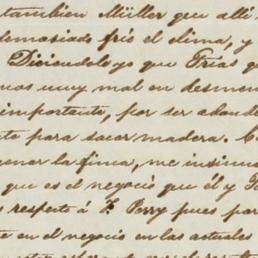 tambien Müller que allí
demasiado frio el clima, y
Diciendole yo que Frias q
nos muy mal en desmon
importante, por ser adonde
te para sacar madera. C
genar la finca, me insinu
que es el negocio que él y P
s respecto á F. Perry pues par
te en el negocio en las actuales